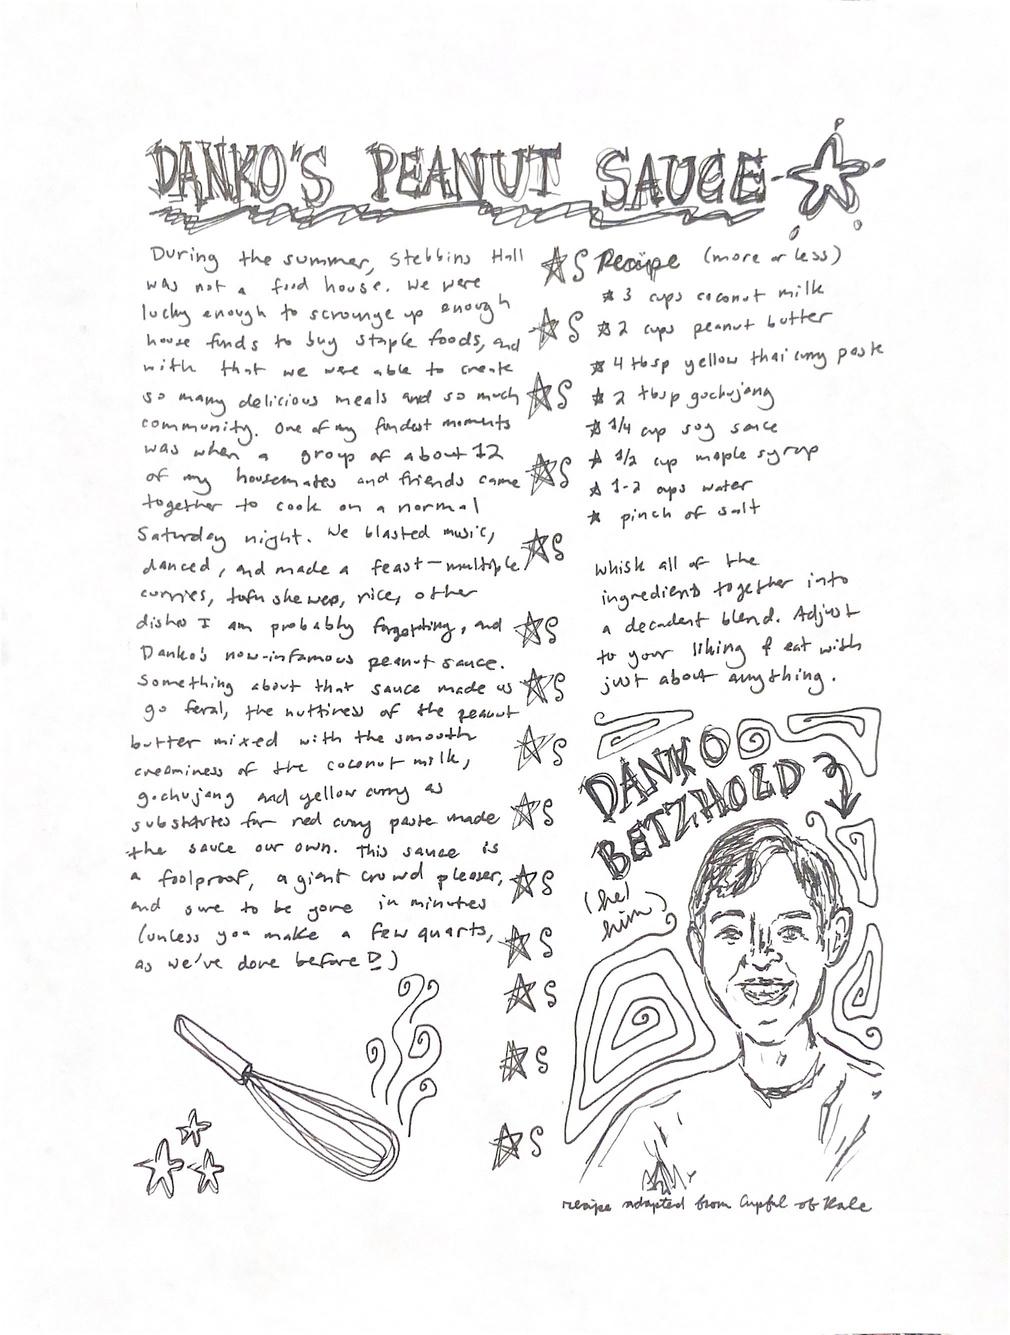 DANKO'S PEANUT SAUCE
During the summer, Stebbins Hall
was not a food house. We were
lucky enough to scrounge up enough
house funds to buy staple foods, and
with that we were able to create
so many delicious meals and so much
community. One of my fondest moments
was when a group of about 12
of my housemates and friends came
together to cook on a normal
Saturday night. We blasted music,
danced, and made a feast—multiple
curries, tofu skewers, rice, other
dishes I am probably forgetting, and
Danko's now-infamous peanut sauce.
Something about that sauce made us
go feral, the nuttiness of the peanut
butter mixed with the smooth
creaminess of the coconut milk,
gochujang and yellow curry as
substitutes for red curry paste made
the sauce our own. This sauce is
a foolproof, a giant crowd pleaser,
and sure to be gone in minutes
(unless you make a few quarts,
as we've done before :D)
Recipe (more or less)
3 cups coconut milk
2 cups peanut butter
4 tbsp yellow thai curry paste
2 tbsp gochujang
1/4 cup soy sauce
1/2 cup maple syrup
1-2 cups water
pinch of salt
whisk all of the
ingredients together into
a decadent blend. Adjust
to your liking & eat with
just about anything.
DANKO
BETZHOLD
(he/
him)
recipe adapted from Cupful of Kale